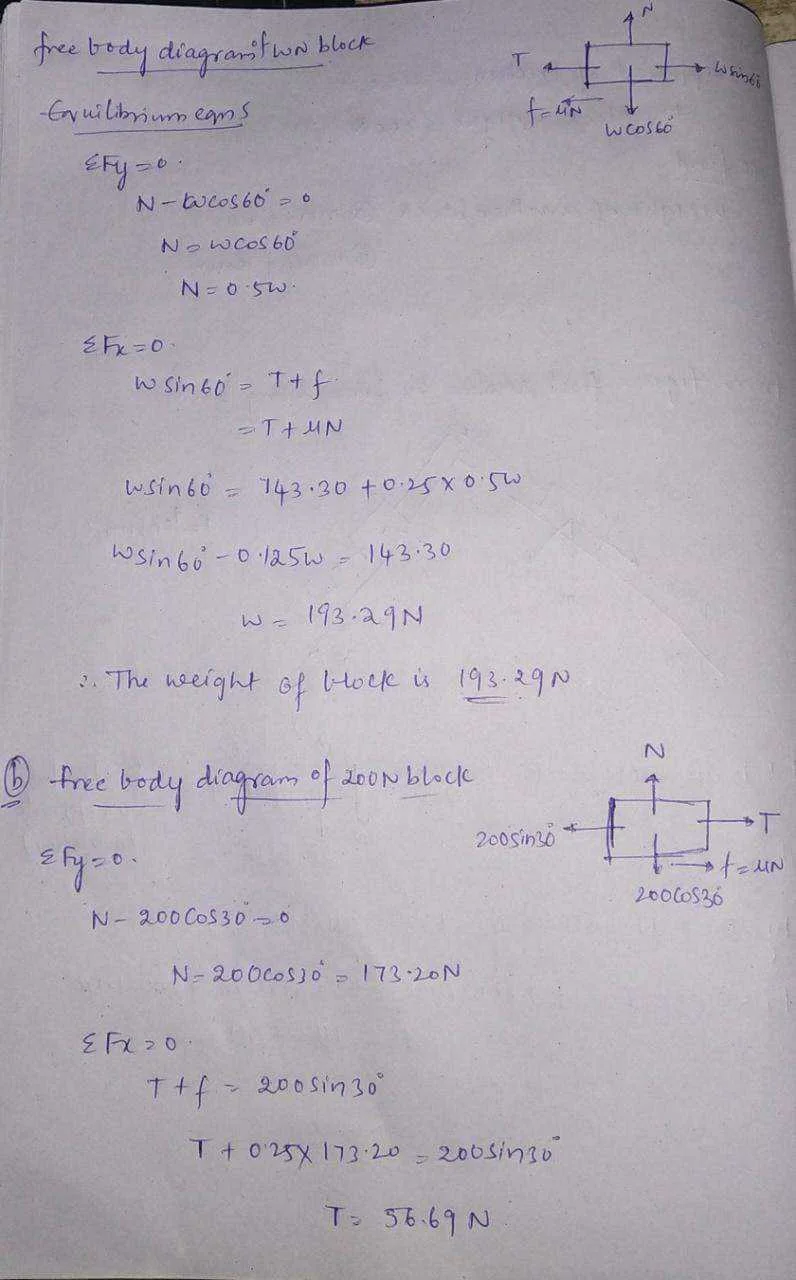 free body diagram of WN block
N
T
Wsin60°
f=μN
Wcos60°
Equilibrium eqns
ΣFy=0.
N-Wcos60°=0
N=Wcos60°
N=0.5W.
ΣFx=0.
Wsin60°=T+f.
=T+μN
Wsin60°=143.30+0.25×0.5W
Wsin60°-0.125W=143.30
W=193.29N
∴ The weight of block is 193.29N
(b) free body diagram of 200N block
N
200sin30°
T
f=μN
200cos30°
ΣFy=0.
N-200cos30°=0
N=200cos30°=173.20N
ΣFx=0.
T+f=200sin30°
T+0.25×173.20=200sin30°
T=56.69N.